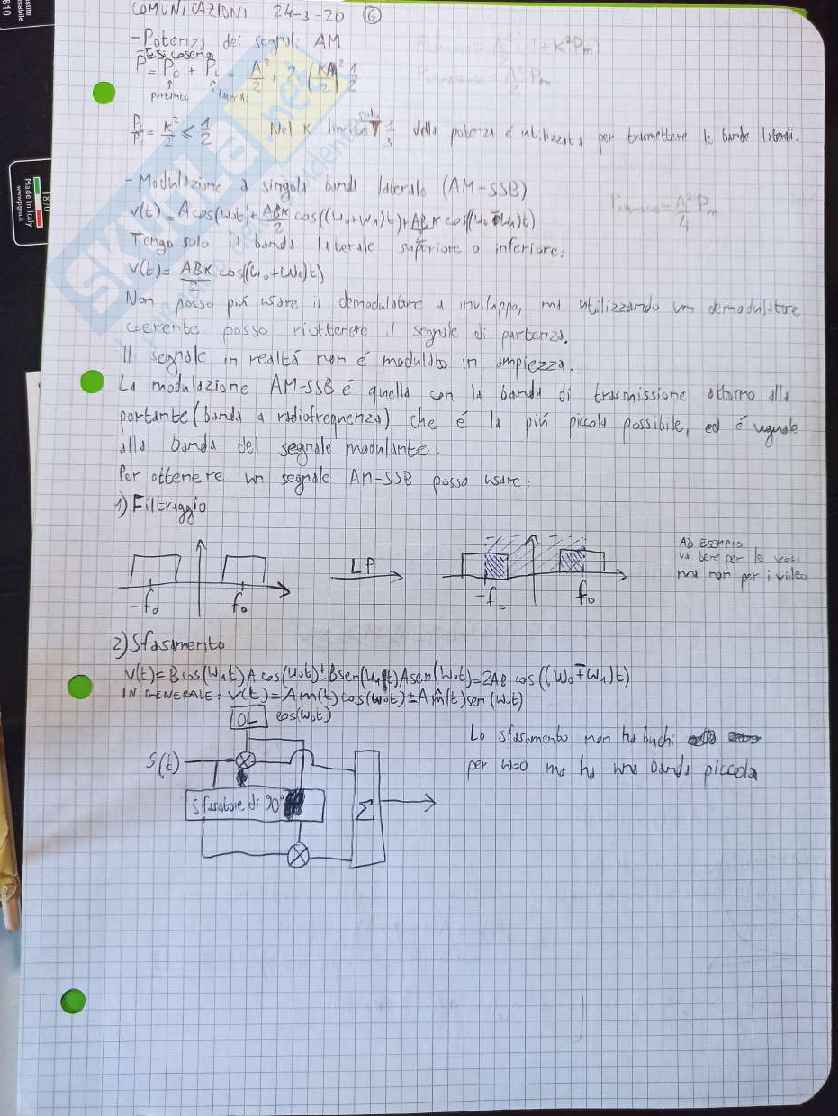 COMUNICAZIONI 24-3-20 6
-Potenza dei segnali AM
P = P₀ + P_L = A²/2 + 2 (KA/2)² 1/2
portante laterali
P_L/P₀ = K²/2 ≤ 1/2 Nel K limite solo 1/3 della potenza è utilizzata per trasmettere le bande laterali.
-Modulazione a singola banda laterale (AM-SSB)
v(t) = A cos(ω₀t) + ABK/2 cos((ω₀+ω₁)t) + ABK/2 cos((ω₀-ω₁)t)
Tengo solo la banda laterale superiore o inferiore:
v(t) = ABK/2 cos((ω₀+ω₁)t)
Non posso più usare il demodulatore a inviluppo, ma utilizzando un demodulatore
coerente posso riottenere il segnale di partenza.
Il segnale in realtà non è modulato in ampiezza.
La modulazione AM-SSB è quella con la banda di trasmissione attorno alla
portante (banda a radiofrequenza) che è la più piccola possibile, ed è uguale
alla banda del segnale modulante.
Per ottenere un segnale AM-SSB posso usare:
1) Filtraggio
LP
-f₀ f₀ -f₀ f₀
AD ESEMPIO
va bene per la voce
ma non per i video
2) Sfasamento
v(t) = B cos(ω₁t) A cos(ω₀t) ± B sen(ω₁t) A sen(ω₀t) = 2AB cos((ω₀∓ω₁)t)
IN GENERALE: v(t) = A m(t) cos(ω₀t) ± A m̂(t) sen(ω₀t)
OL cos(ω₀t)
S(t)
Sfasatore di 90°
Σ
Lo sfasamento non ha buchi
per ω=0 ma ha una banda piccola
Made in Italy